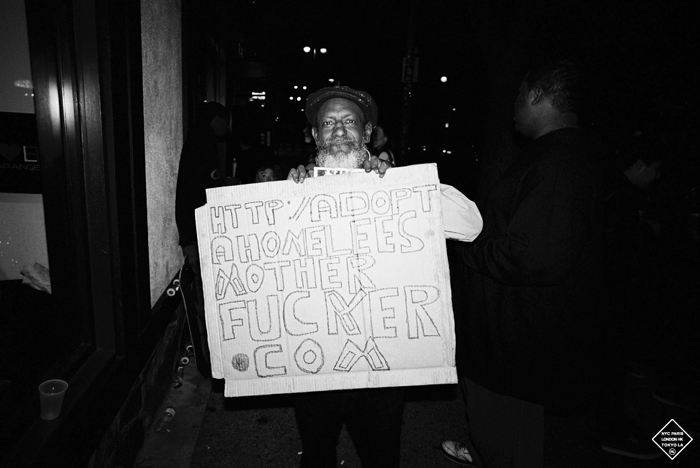 HTTP://ADOPT
AHOMELEES
MOTHER
FUCKER
.COM
NYC PARIS
LONDON HK
TOKYO LA